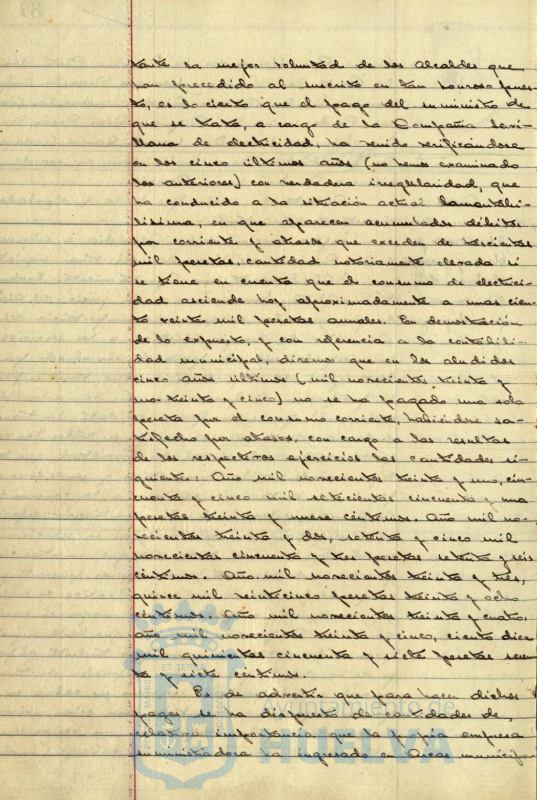 tante la mejor voluntad de los Alcaldes que
han precedido al suscrito en tan honroso pues-
to, es lo cierto que el pago del suministro de
que se trata, a cargo de la Compañia Sevi-
llana de electricidad, ha venido verificandose
en los cinco últimos años (no hemos examinado
los anteriores) con verdadera irregularidad, que
ha conducido a la situación actual lamentabi-
lisima, en que aparecen acumulados débitos
por corriente y atrasos que exceden de trescientas
mil pesetas, cantidad notoriamente elevada si
se tiene en cuenta que el consumo de electrici-
dad asciende hoy aproximadamente a unas cien-
to veinte mil pesetas anuales. En demostración
de lo expuesto, y con referencia a la contabili-
dad municipal, diremos que en los aludidos
cinco años últimos (mil novecientos treinta y
uno-treinta y cinco) no se ha pagado una sola
peseta por el consumo corriente, habiéndose sa-
tisfecho por atrasos, con cargo a las resultas
de los respectivos ejercicios las cantidades si-
guientes: Año mil novecientos treinta y uno, cin-
cuenta y cinco mil setecientas cincuenta y una
pesetas treinta y nueve céntimos. Año mil no-
vecientos treinta y dos, setenta y cinco mil
novecientas cincuenta y tres pesetas setenta y seis
céntimos. Año mil novecientos treinta y tres,
quince mil veinticinco pesetas treinta y ocho
céntimos. Año mil novecientos treinta y cuatro,
año mil novecientos treinta y cinco, ciento diez
mil quinientas cincuenta y siete pesetas
y siete céntimos.
Es de advertir que para hacer dichos
pagos se ha dispuesto de cantidades de,
relativa importancia que la propia empresa
suministradora ha ingresado en Arcas municipa-
Ayuntamiento de
HUELVA